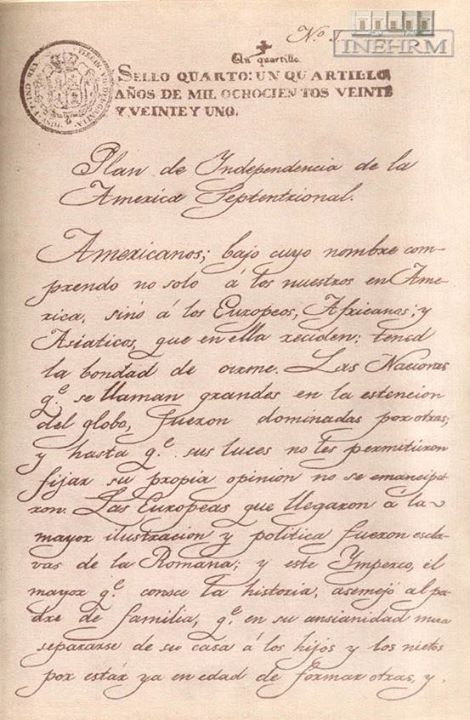 N.º 1
INEHRM
Un quartillo
SELLO QUARTO: UN QUARTILLO
AÑOS DE MIL OCHOCIENTOS VEINTE
Y VEINTE Y UNO.
Plan de Independencia de la
America Septentrional.
Americanos; bajo cuyo nombre com-
prendo no solo á los nuestros en Ame-
rica, sinó á los Europeos, Africanos; y
Asiaticos, que en ella reciden: tened
la bondad de oirme. Las Naciones
q.e se llaman grandes en la estencion
del globo, fueron dominadas por otras;
y hasta q.e sus luces no les permitiéron
fijar su propia opinión no se emancipa-
ron. Las Europeas que llegaron á la
mayor ilustracion y politica fueron escla-
vas de la Romana; y este Imperio, el
mayor q.e conoce la historia, asemejó al pa-
dre de familia, q.e en su ansianidad mira
separarse de su casa á los hijos y los nietos
por estár ya en edad de formar otras, y